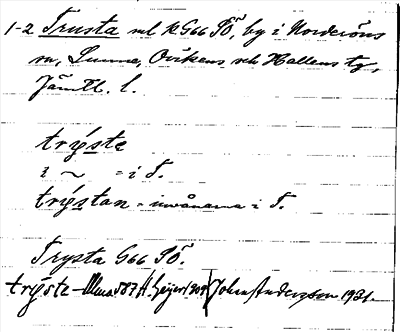 1-2 Trusta ml k G66 SÖ, by i Norderöns
sn, Sunne, Ovikens och Hallens tg,
Jämtl. l.
trýste
i ~ = i T.
trýstan = invånarna i T.
Trysta G66 SÖ.
trýste - 587 H. Geijer 1909 Johan Andersson 1931